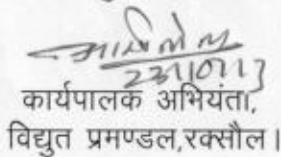 कार्यपालक अभियंता,
विद्युत प्रमण्डल,रक्सौल।